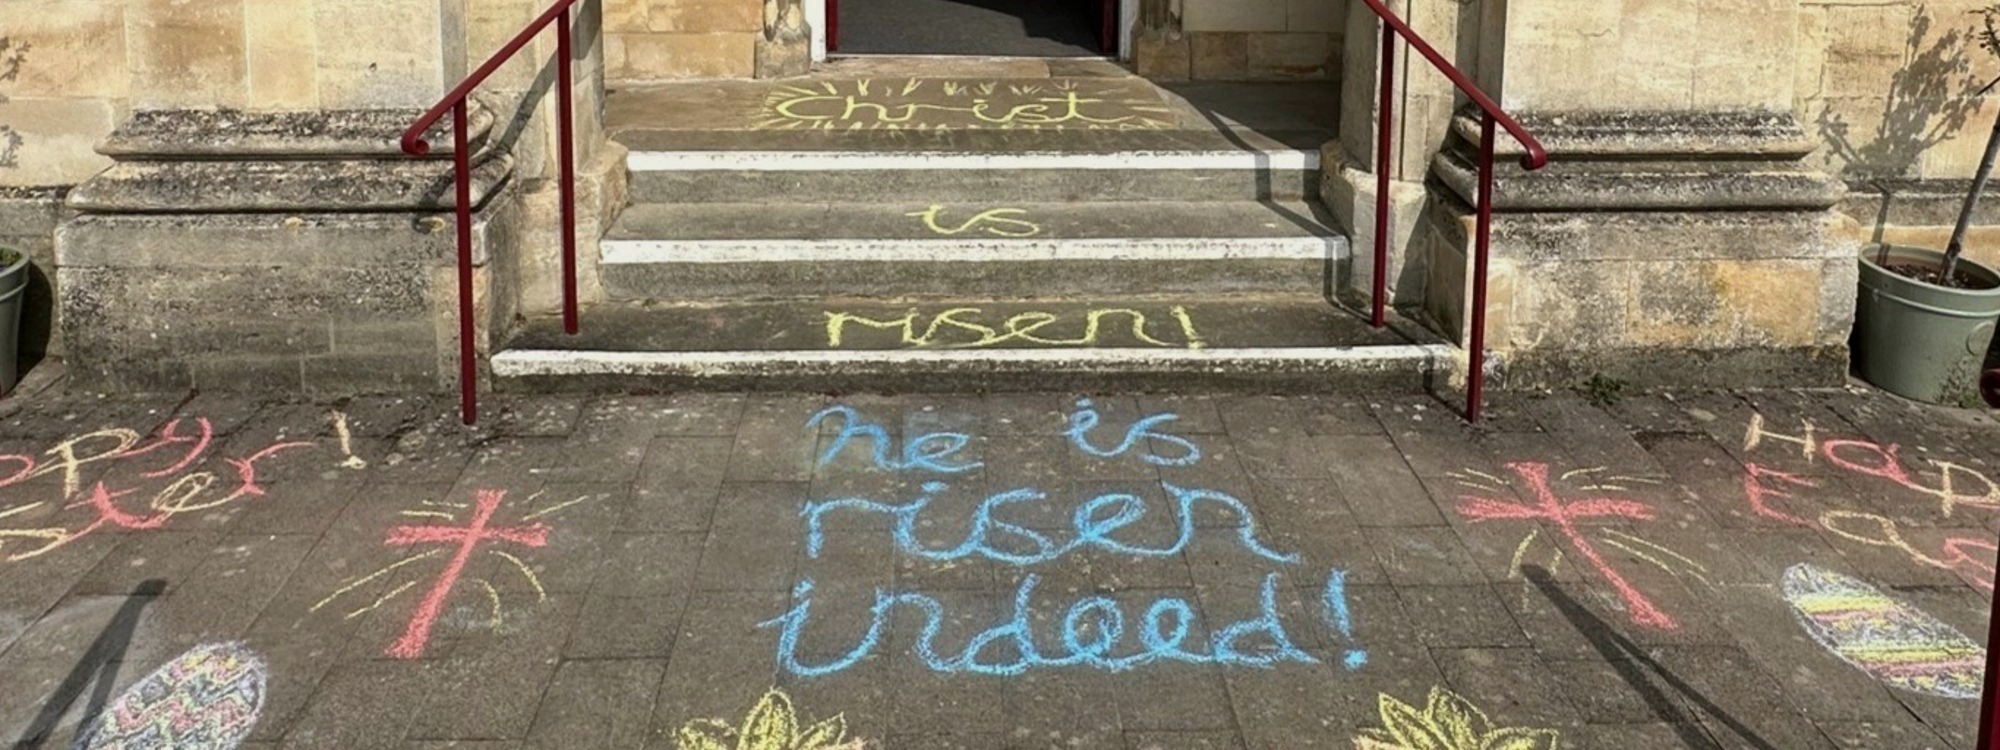 Christ
is
risen!
he is
risen
indeed!
Easter!
Happ
Eas